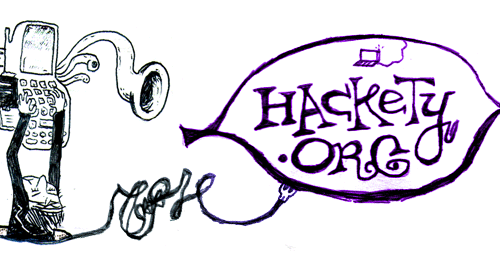 HAcKeTy
.ORG